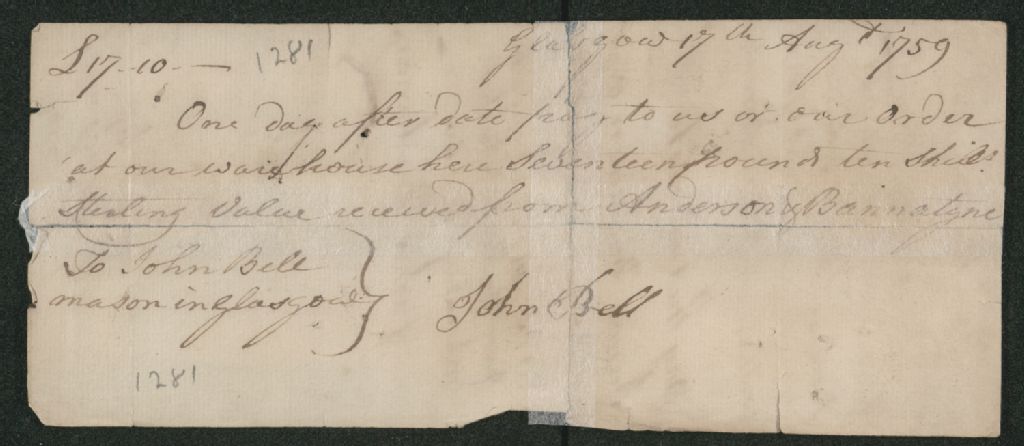 Glasgow 17th Augt 1759
£17-10-—
1281
One day after date pay to us or our order
at our warehouse here Seventeen pounds ten Shills
Sterling value received from Anderson & Bannatyne
To John Bell
mason in Glasgow
John Bell
1281